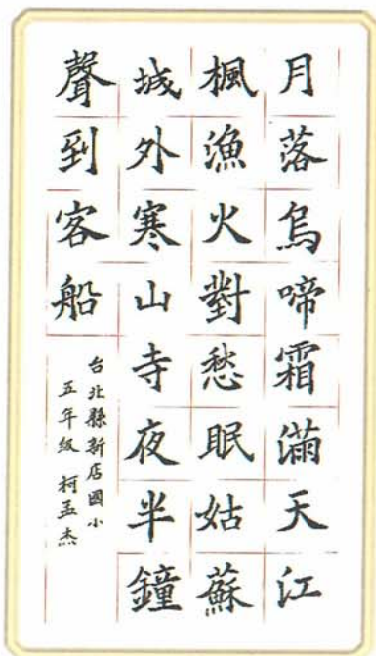 月落烏啼霜滿天江
楓漁火對愁眠姑蘇
城外寒山寺夜半鐘
聲到客船
台北縣新店國小
五年級 柯孟杰